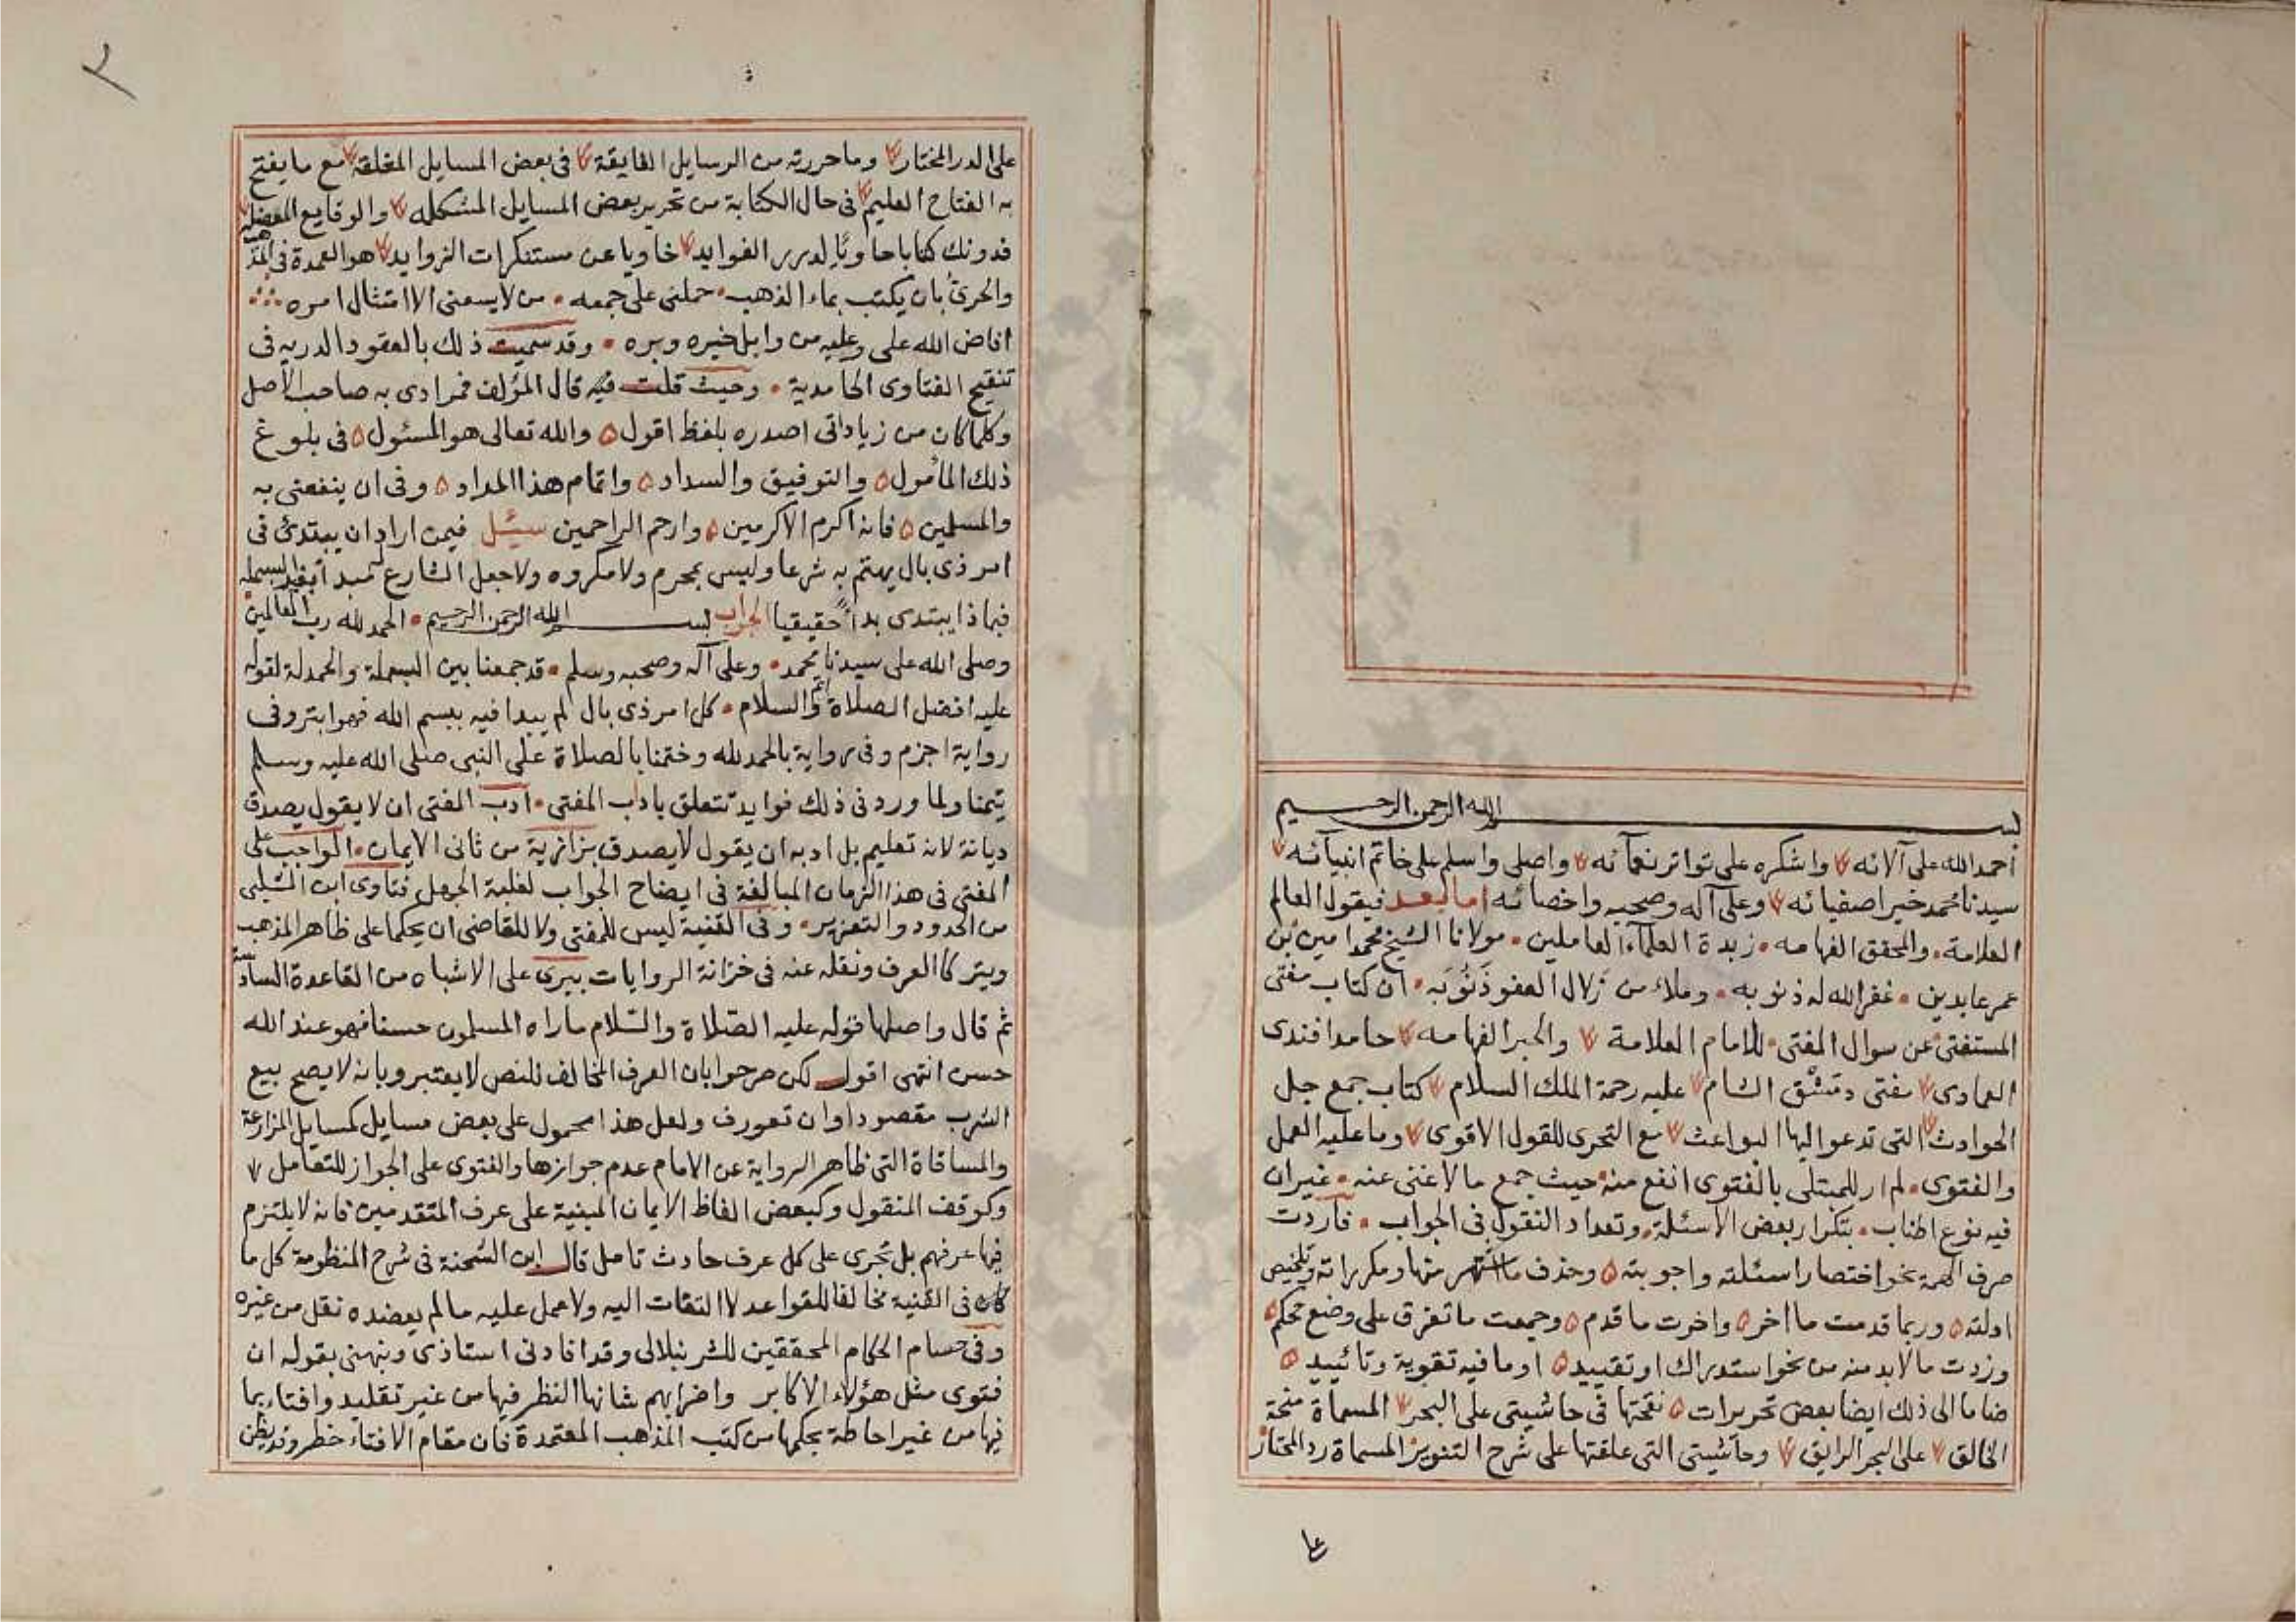 بسم الله الرحمن الرحيم
أحمد الله على آلائه واشكره على تواتر نعمآئه واصلى واسلم على خاتم انبيآئه
سيدنا محمد خير اصفيائه وعلى آله وصحبه واخصائه اما بعد فيقول العالم
العلامة والمحقق الفهامه زبدة العلمآء العاملين مولانا الشيخ محمد امين بن
عمر عابدين غفر الله له ذنوبه وملاء من زلال العفو ذَنُوبَه ان كتاب مغنى
المستفتى عن سوال المفتى للامام العلامة والحبر الفهامه حامد افندى
العمادى مفتى دمشق الشام عليه رحمة الملك السلام كتاب جمع جل
الحوادث التى تدعوا اليها البواعث مع التحرى للقول الاقوى وما عليه العمل
والفتوى لم ار للمبتلى بالفتوى انفع منه حيث جمع ما لا غنى عنه غير ان
فيه نوع اطناب بتكرار بعض الاسئلة وتعداد النقول فى الجواب فاردت
صرف الهمة نحو اختصار اسئلته واجوبته وحذف ما اشتهر منها ومكرراته وتلخيص
ادلته وربما قدمت ما اخر واخرت ما قدم وجمعت ما تفرق على وضع محكم
وزدت ما لابد منه من نحو استدراك او تقييد او ما فيه تقوية وتائييد
ضاما الى ذلك ايضا بعض تحريرات نقحتها فى حاشيتى على البحر المسماة منحة
الخالق على البحر الرايق وحاشيتى التى علقتها على شرح التنوير المسماة رد المحتار
على الدر المختار وما حررته من الرسايل الفايقة فى بعض المسايل المغلقه مع ما يفتح
به الفتاح العليم فى حال الكتابة من تحرير بعض المسايل المشكله والوقايع المعضله
فدونك كتابا حاويًا لدرر الفوايد خاويا عن مستنكرات الزوايد هو العمدة فى المذهب
والحرىُّ بان يكتب بماء الذهب حملنى على جمعه من لا يسعنى الا امتثال امره
افاض الله على وعليه من وابل خيره وبره وقد سميت ذلك بالعقود الدريه فى
تنقيح الفتاوى الحامدية وحيث قلت فيه قال المؤلف فمرادى به صاحب الأصل
وكلما كان من زياداتى اصدره بلفظ اقول والله تعالى هو المسئول فى بلوغ
ذلك المأمول والتوفيق والسداد واتمام هذا المداد وفى ان ينفعنى به
والمسلمين فانه اكرم الاكرمين وارحم الراحمين سئل فيمن اراد ان يبتدئ فى
امر ذى بال يهتم به شرعا وليس بمحرم ولا مكروه ولا جعل الشارع له مبدأ بغير البسمله
فبماذا يبتدى بدأ حقيقيا الجواب بسم الله الرحمن الرحيم الحمد لله رب العالمين
وصلى الله على سيدنا محمد وعلى آله وصحبه وسلم قد جمعنا بين البسملة والحمدلة لقوله
عليه افضل الصلاة واتم السلام كل امر ذى بال لم يبدا فيه ببسم الله فهو ابتر وفى
رواية اجزم وفى رواية بالحمد لله وختمنا بالصلاة على النبى صلى الله عليه وسلم
تيمنا ولما ورد فى ذلك فوايد تتعلق باداب المفتى ادب المفتى ان لا يقول يصدق
ديانة لانه تعليم بل ادبه ان يقول لا يصدق بزازية من ثانى الايمان الواجب على
المفتى فى هذا الزمان المبالغة فى ايضاح الجواب لغلبة الجهل فتاوى ابن الشلبى
من الحدود والتعزير وفى القنية ليس للمفتى ولا للقاضى ان يحكما على ظاهر المذهب
ويتركا العرف ونقله عنه فى خزانة الروايات بيرى على الاشباه من القاعدة السادسة
ثم قال واصلها قوله عليه الصلاة والسّلام ما راه المسلمون حسنا فهو عند الله
حسن انتهى اقول لكن صرحوا بان العرف المخالف للنص لا يعتبر وبانه لا يصح بيع
الشرب مقصودا وان تعورف ولعل هذا محمول على بعض مسايل كمسايل المزارعة
والمساقاة التى ظاهر الرواية عن الامام عدم جوازها والفتوى على الجواز للتعامل
وكوقف المنقول وكبعض الفاظ الايمان المبنية على عرف المتقدمين فانه لا يلتزم
فيها عرفهم بل تجرى على كل عرف حادث تامل قال ابن الشحنة فى شرح المنظومة كل ما
كان فى القنية مخالفا للقواعد لا التفات اليه ولا عمل عليه ما لم يعضده نقل من غيره
وفى حسام الحكام المحققين للشرنبلالى وقد افادنى استاذى ونبهنى بقوله ان
فتوى مثل هؤلاء الاكابر واضرابهم شانها النظر فيها من غير تقليد وافتاء بما
فيها من غير احاطة بحكمها من كتب المذهب المعتمدة فان مقام الافتاء خطر وقد يظن